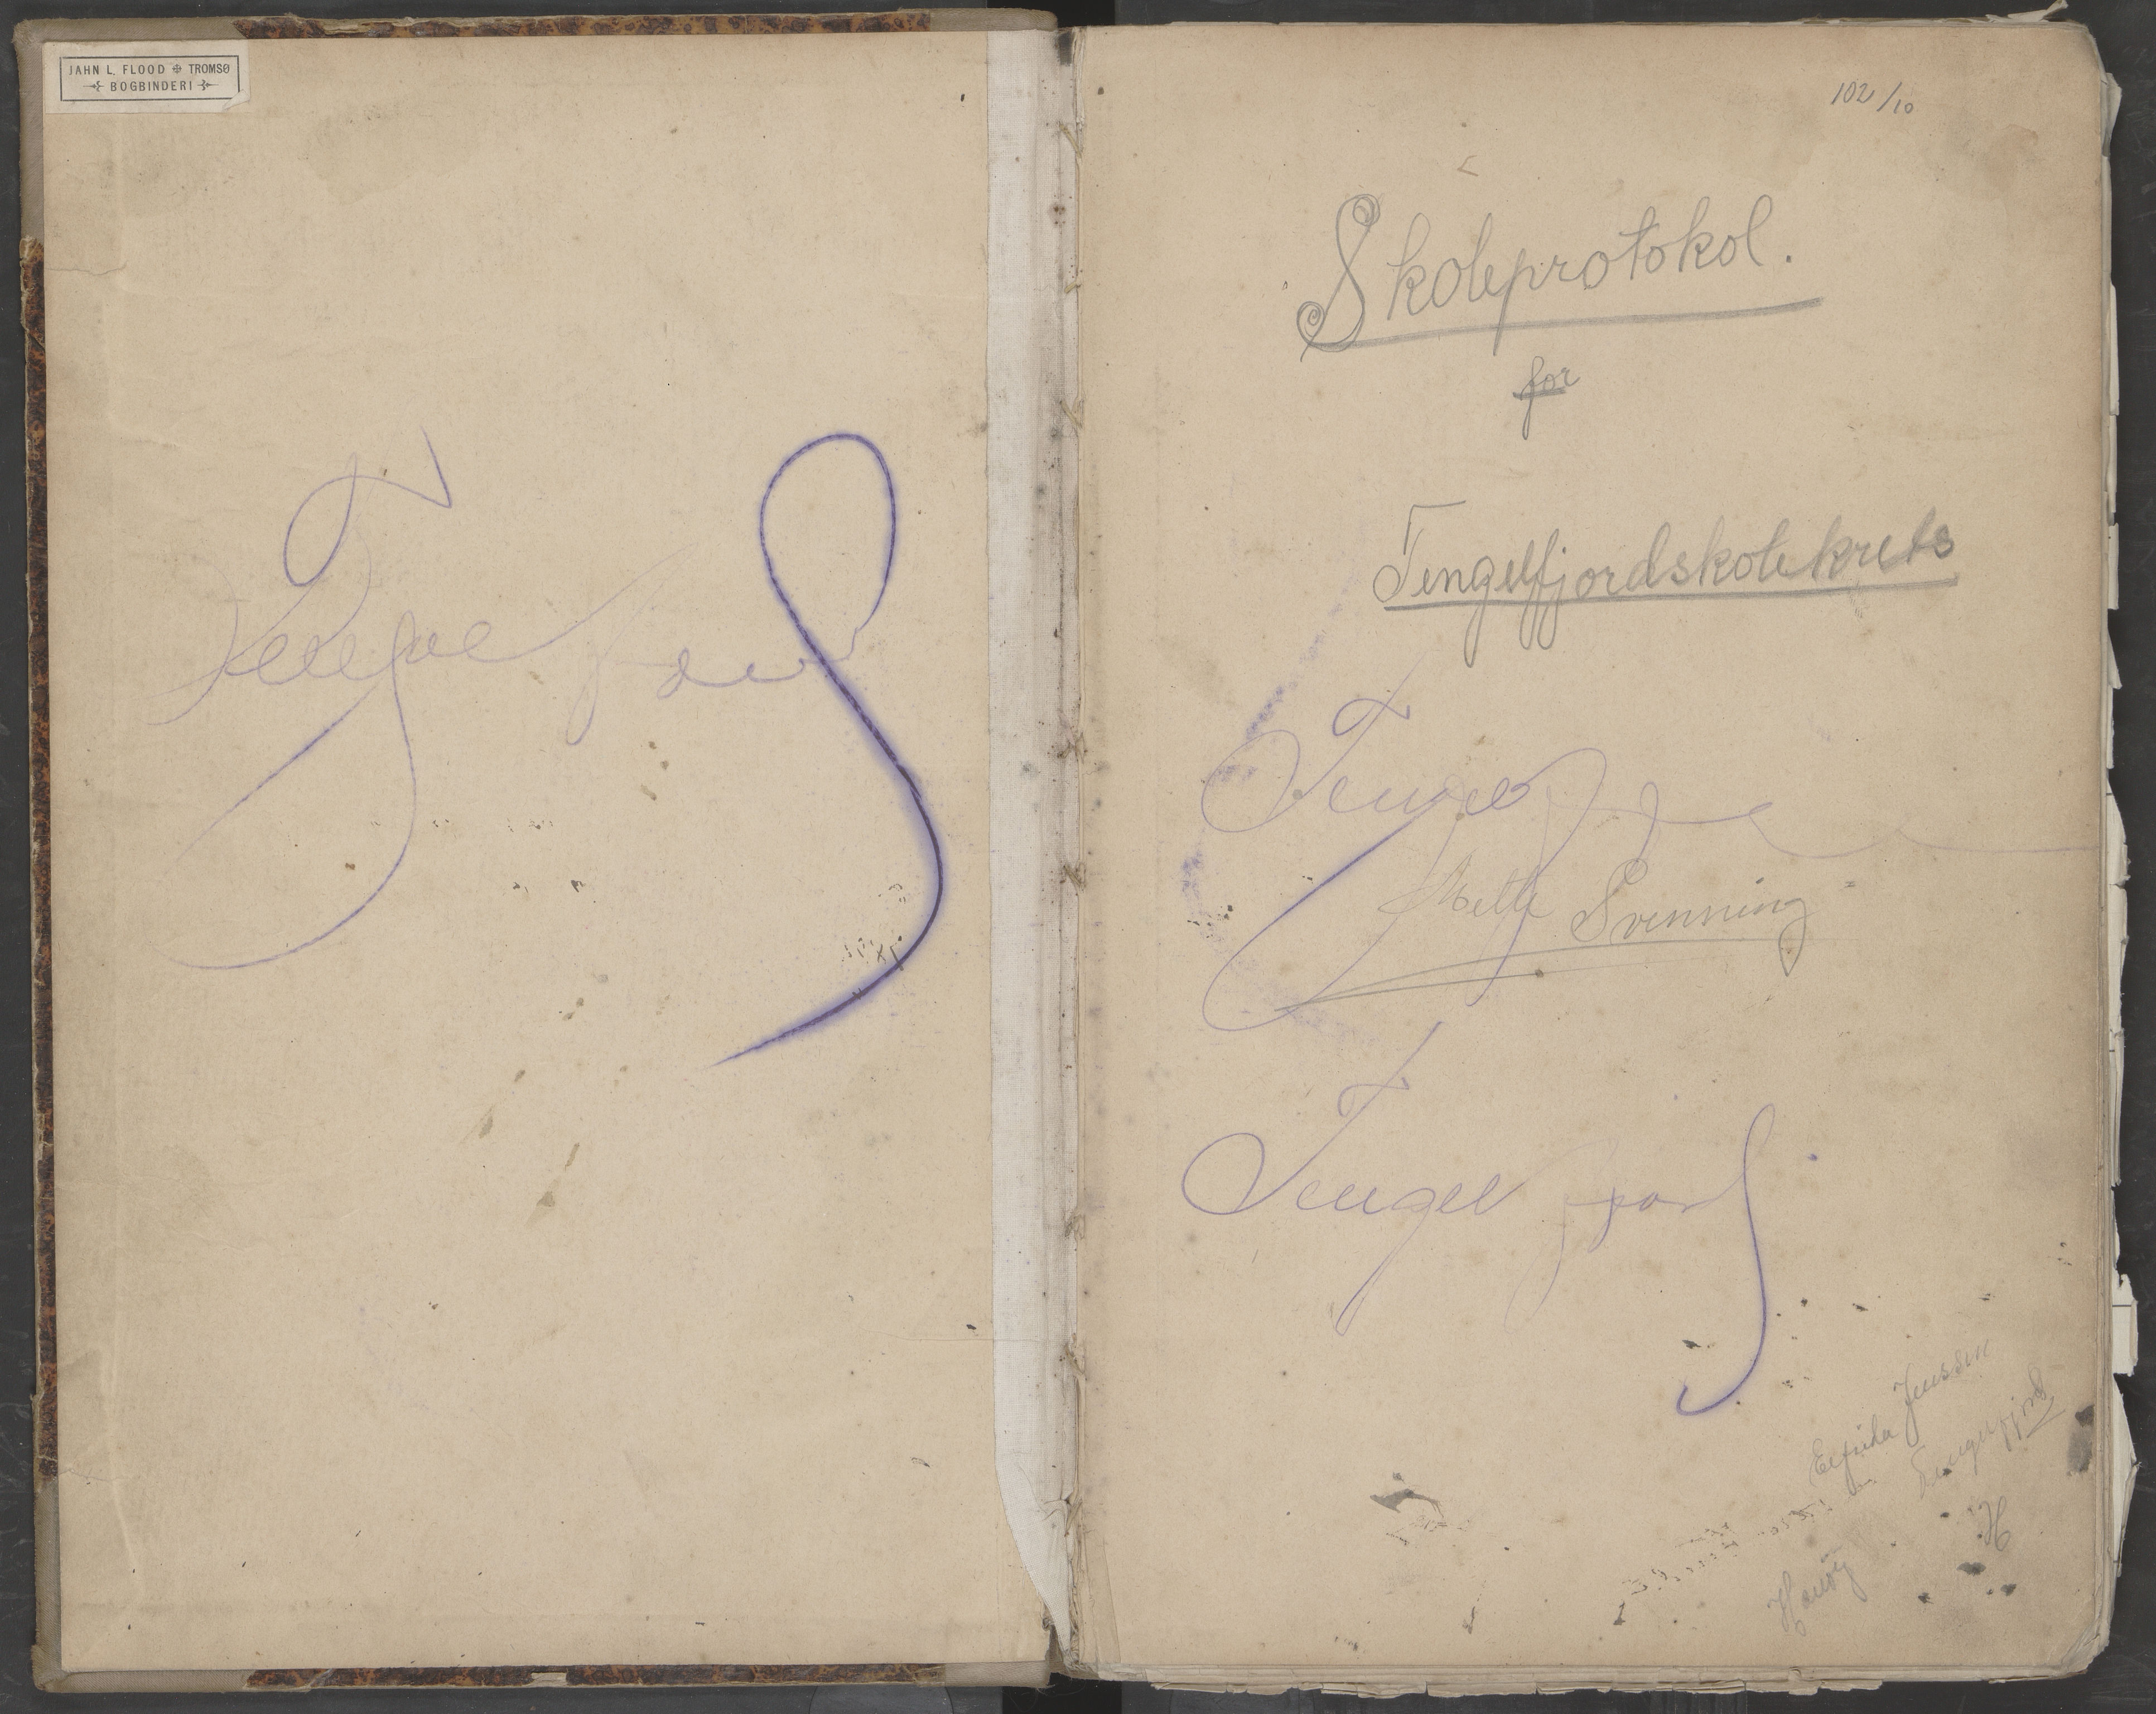 JAHN L. FLOOD ✠ TROMSØ
BOGBINDERI
102/10
Skoleprotokol.
for
Tengelfjordskolekrets
Tengel
Mette Svenning
Tengelfjord
Elfrida Jenssen
Tengelfjord
H
Hanøy